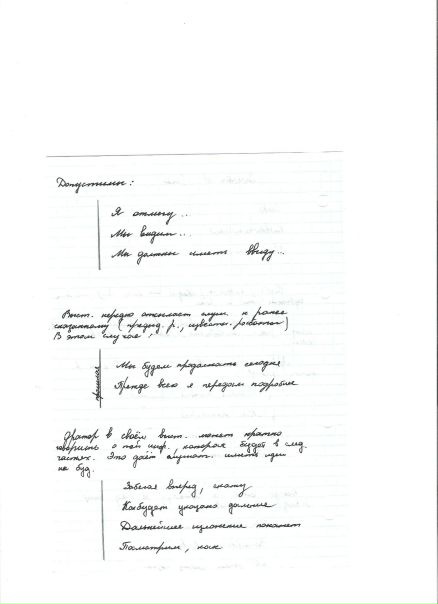 Допустимы:
Я отмечу...
Мы видим...
Мы должны иметь ввиду...
Выст. нередко отсылает слуш. к ранее
сказанному (предыд. р., известн. работы)
В этом случае:
Мы будем продолжать сегодня
Прежде всего я передам подробнее
Оратор в своём выст. может кратко
говорить о той инф., которая будет в след.
частях. Это даёт слушат. иметь идеи
на буд.
Забегая вперед, скажу
Как будет указано дальше
Дальнейшее изложение покажет
Посмотрим, как